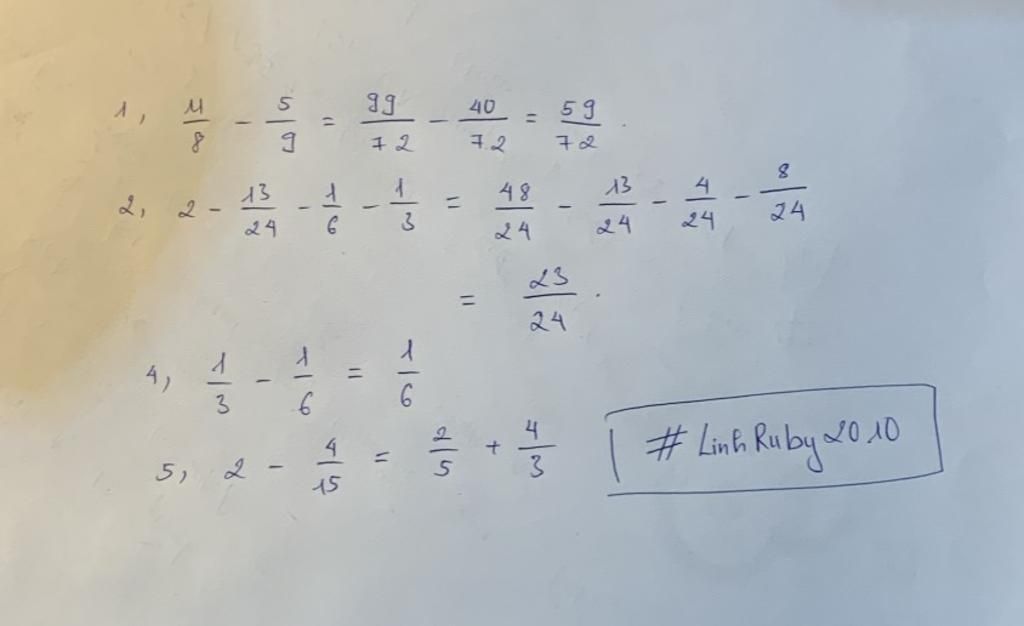 1, 11/8 - 5/9 = 99/72 - 40/72 = 59/72.
2, 2 - 13/24 - 1/6 - 1/3 = 48/24 - 13/24 - 4/24 - 8/24
= 23/24.
4, 1/3 - 1/6 = 1/6
5, 2 - 4/15 = 2/5 + 4/3
# LinhRuby2010